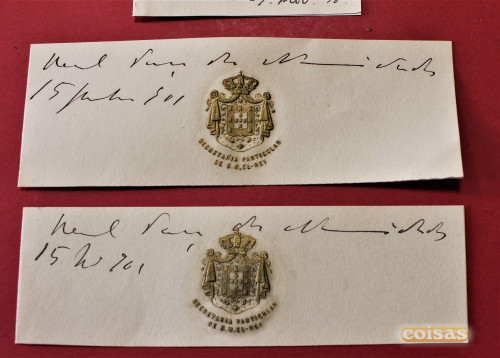 Real Paço das Necessidades
15 Junho 901
SECRETARIA PARTICULAR
DE S.M. EL-REI
Real Paço das Necessidades
15 901
SECRETARIA PARTICULAR
DE S.M. EL-REI
coisas